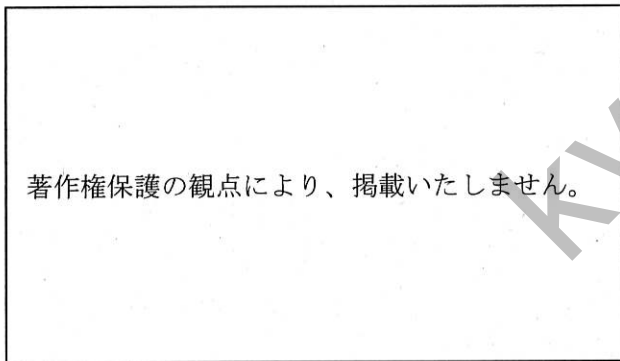 著作権保護の観点により、掲載いたしません。